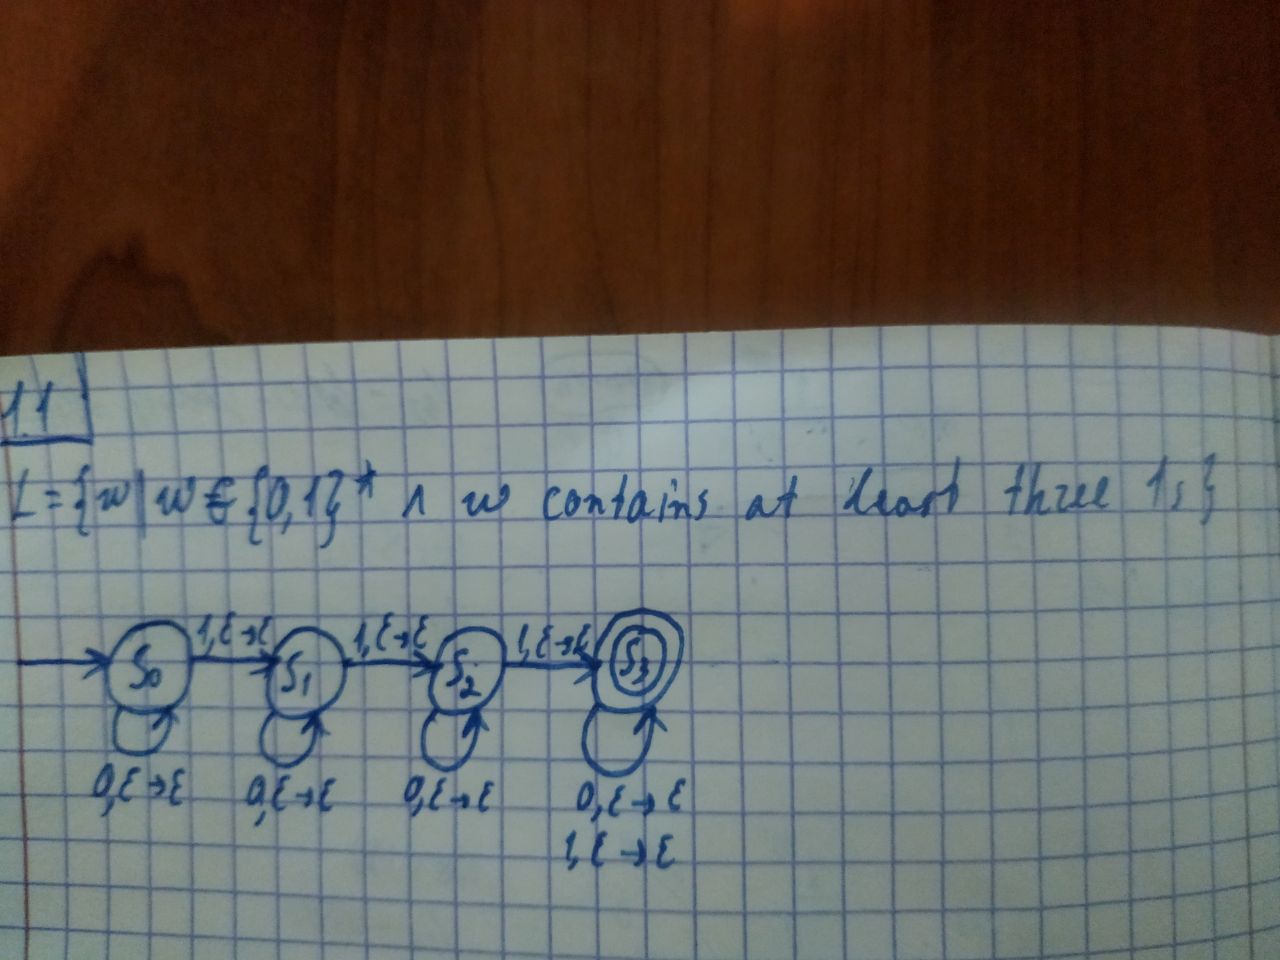 1.1
L = {w | w ∈ {0,1}* ∧ w contains at least three 1s}
1,ε→ε 1,ε→ε 1,ε→ε
S₀ S₁ S₂ S₃
0,ε→ε 0,ε→ε 0,ε→ε 0,ε→ε
1,ε→ε